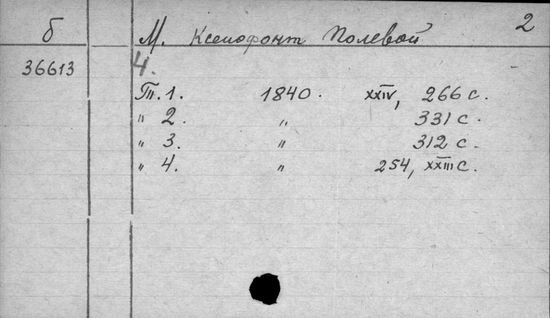 б М. Ксенофонт Полевой 2
36613 Ч.
Т. 1. 1840. XXIV, 266 с.
" 2. " 331 с.
" 3. " 312 с.
" 4. " 254, XXIII с.